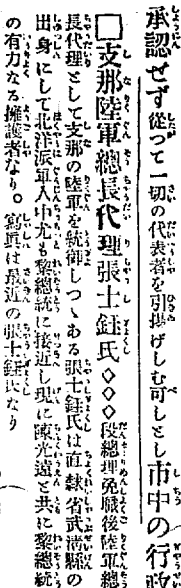 承認せず從つて一切の代表者を引揚げしむ可しとし市中の行政
□支那陸軍總長代理張士鈺氏◇◇◇段總理免職後陸軍總
長代理として支那の陸軍を統御しつゝある張士鈺氏は直隷省武淸縣の
出身にして北洋派軍人中尤も黎總統に接近し現に陳光遠と共に黎總統
の有力なる擁護者なり。寫眞は最近の張士鈺氏なり